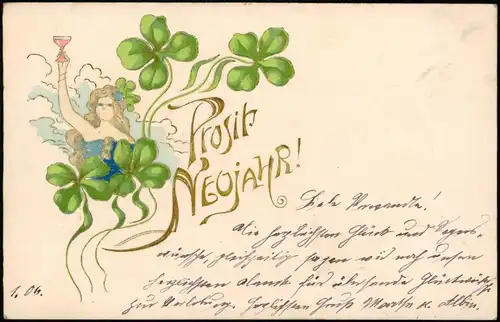 Prosit
Neujahr!
Liebe Verwandte!
Die herzlichsten Glück und Segens-
wünsche, gleichzeitig sagen wir noch unsern
herzlichsten Dank für übersandte Glückwünsche
zur Verlobung. Herzlichsten Gruß Martha u. Albin.
1.06.